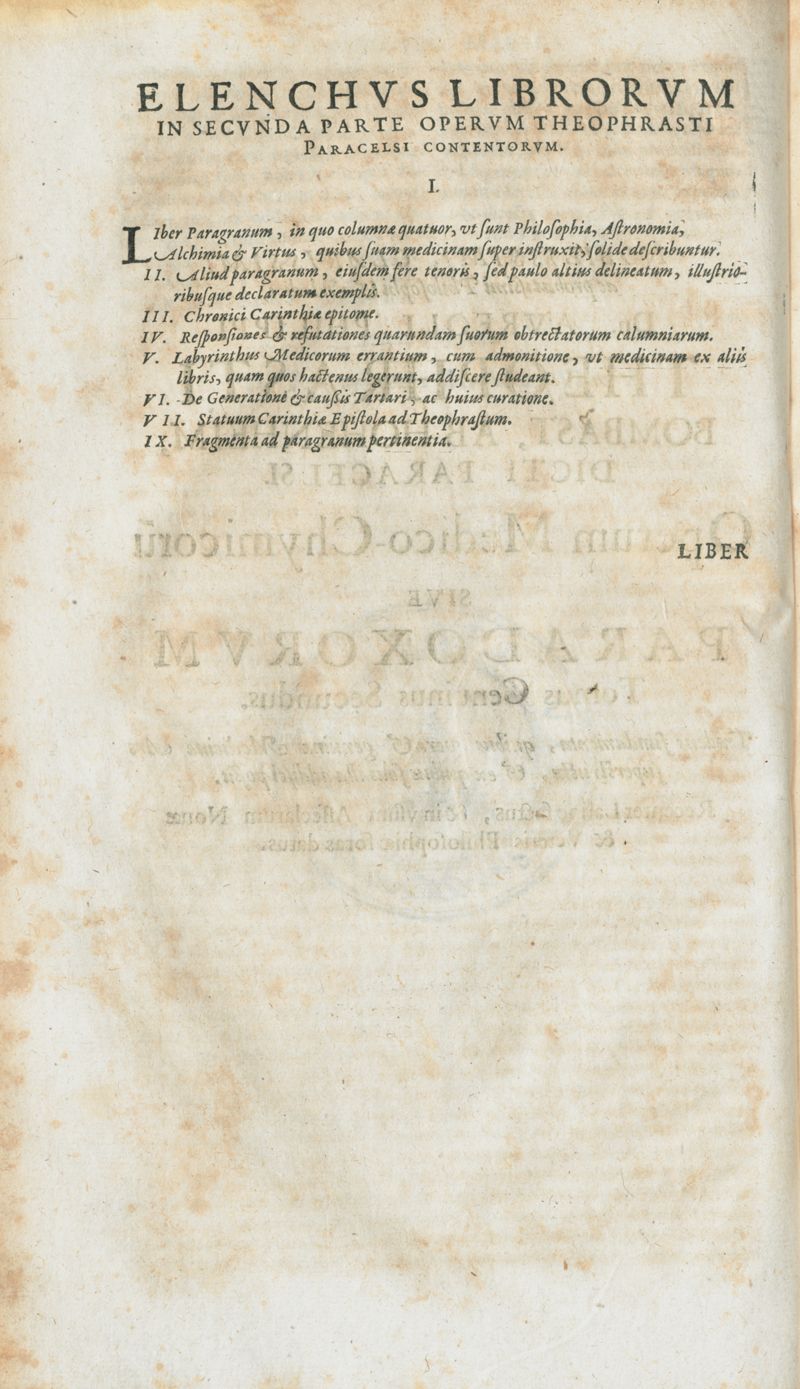 ELENCHVS LIBRORVM
IN SECVNDA PARTE OPERVM THEOPHRASTI
PARACELSI CONTENTORVM.
I.
LIber Paragranum, in quo columnæ quatuor, vt ſunt Philoſophia, Aſtronomia,
Alchimia & Virtus, quibus ſuam medicinam ſuper inſtruxit, ſolide deſcribuntur.
II. Aliud paragranum, eiuſdem fere tenoris, ſed paulo altius delineatum, illuſtrio-
ribuſque declaratum exemplis.
III. Chronici Carinthiæ epitome.
IV. Reſponſiones & refutationes quarundam ſuorum obtrectatorum calumniarum.
V. Labyrinthus Medicorum errantium, cum admonitione, vt medicinam ex aliis
libris, quam quos hactenus legerunt, addiſcere ſtudeant.
VI. De Generatione & cauſsis Tartari, ac huius curatione.
VII. Statuum Carinthiæ Epiſtola ad Theophraſtum.
IX. Fragmenta ad paragranum pertinentia.
LIBER